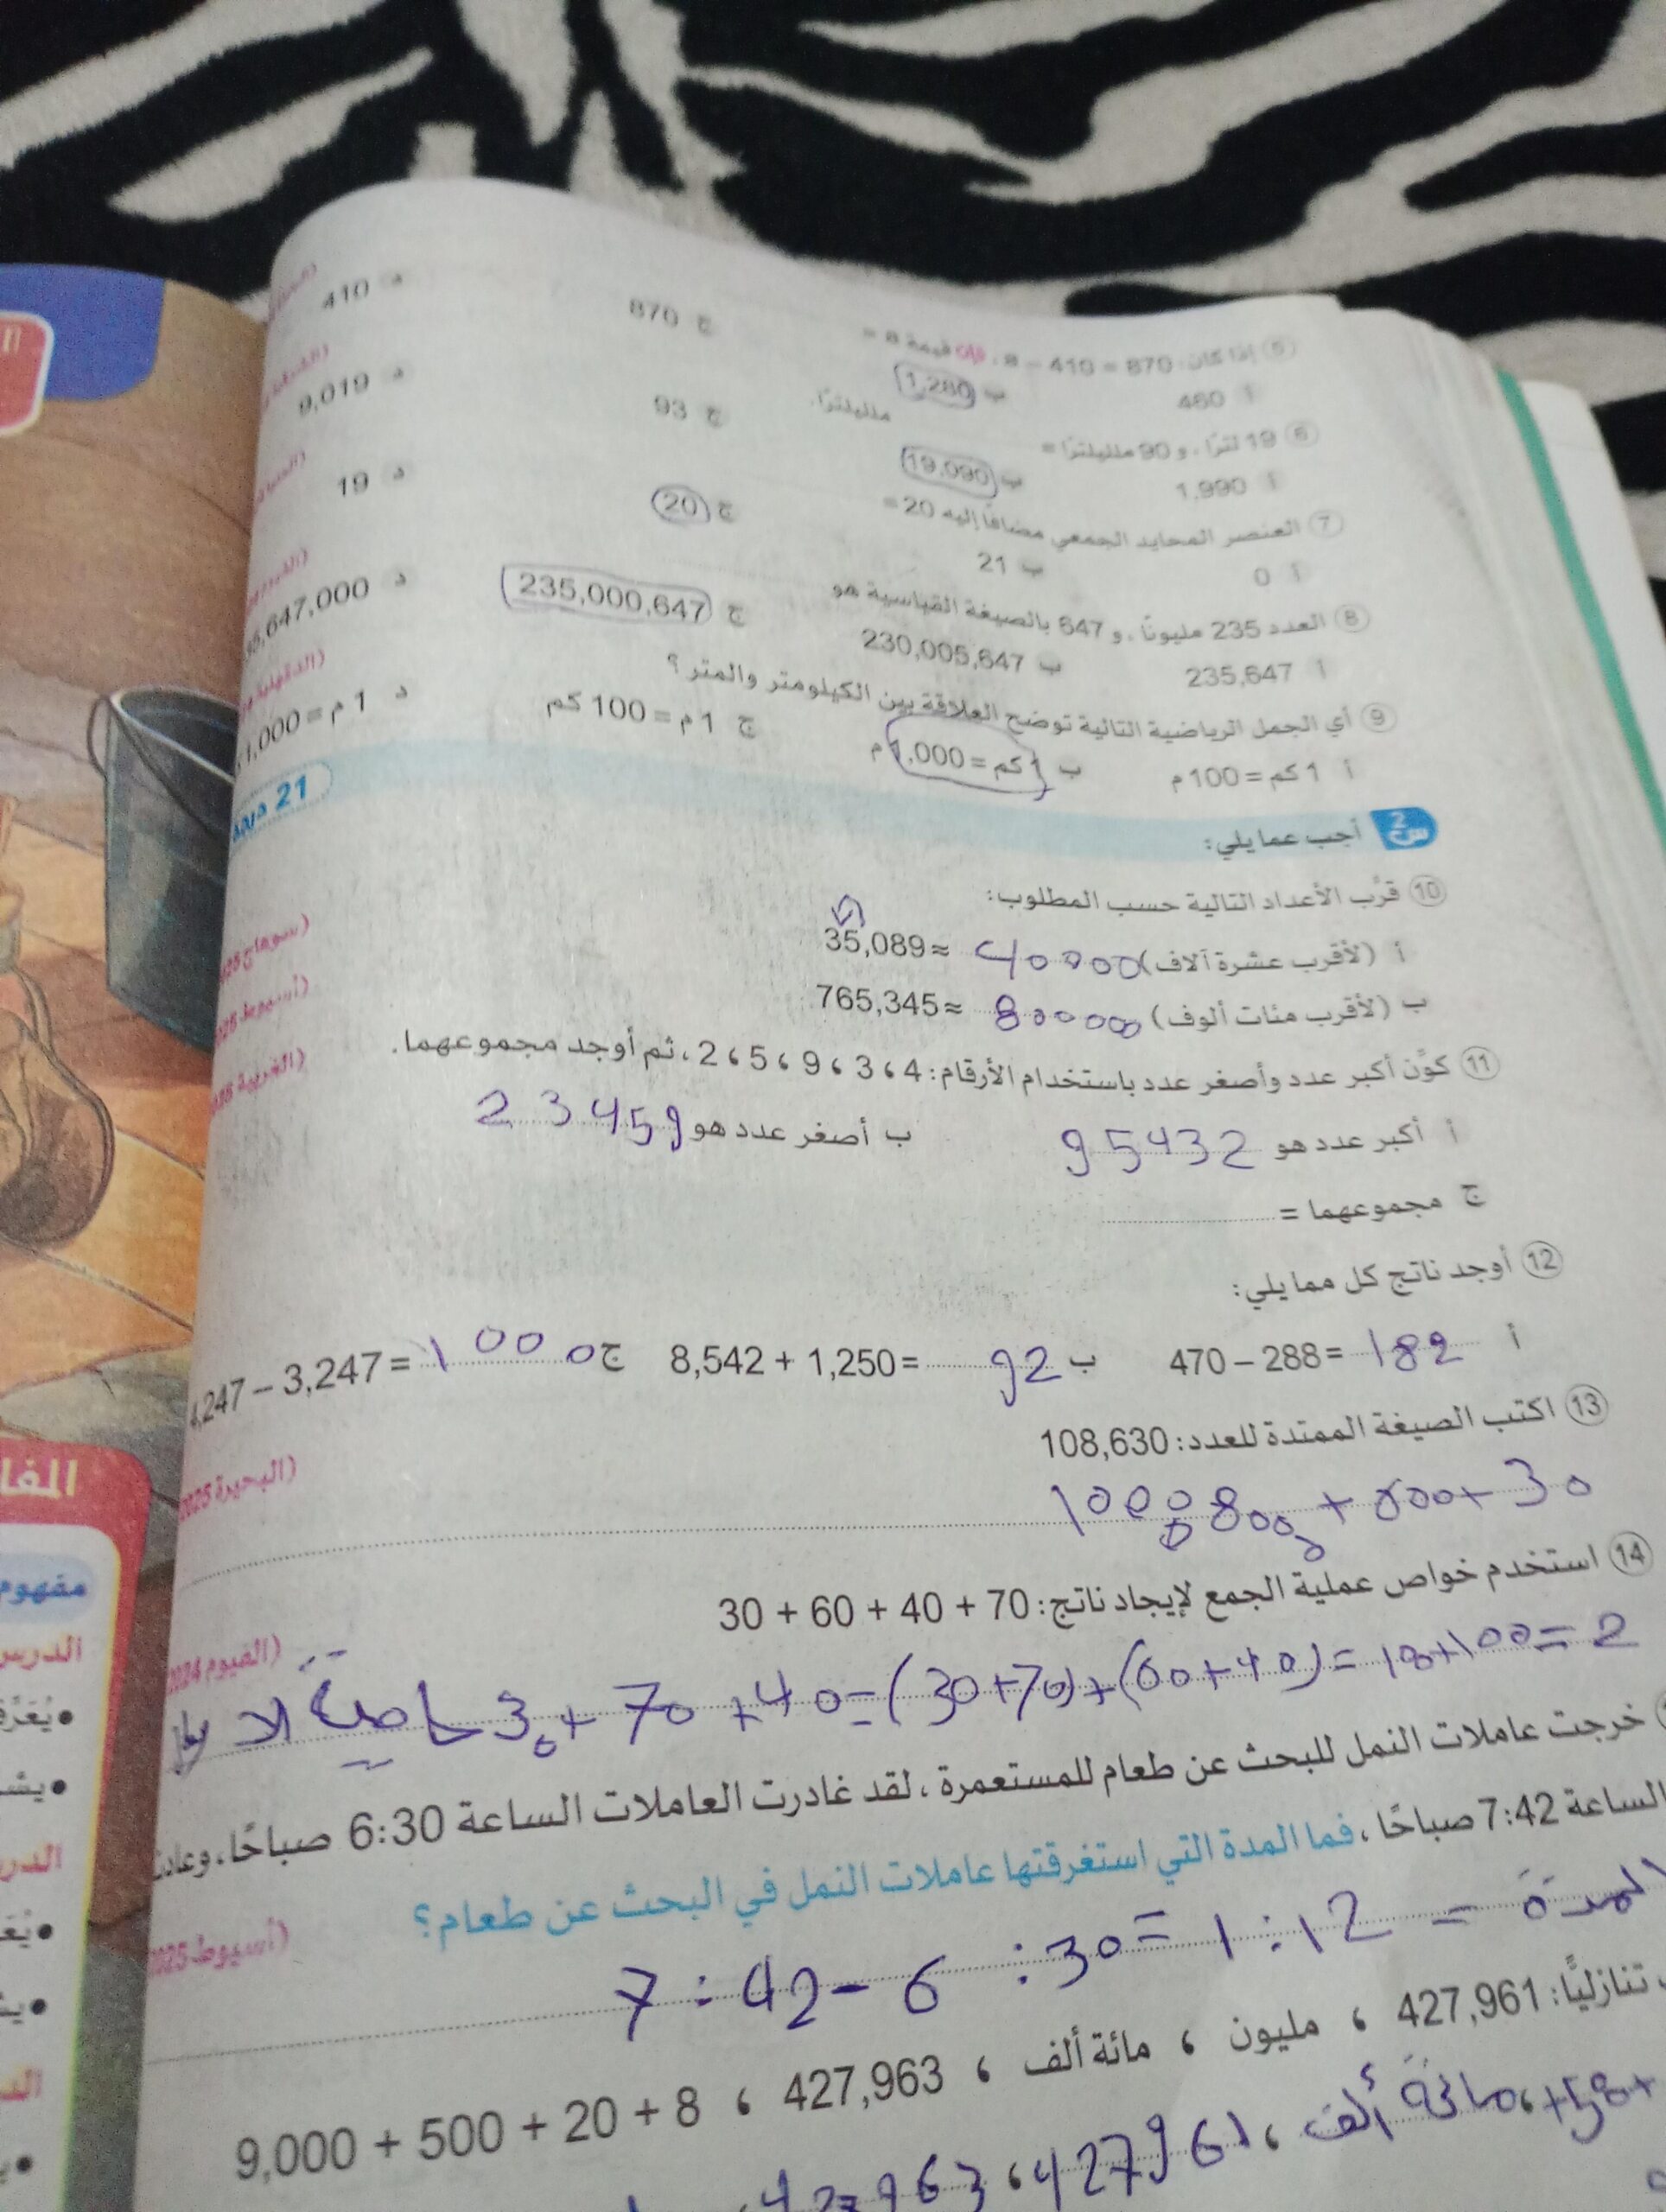 5 إذا كان: 870 = 410 – B ، فإن قيمة B =
أ 460 ب 1,280 ج 870 د 410
6 19 لترًا، و 90 ملليلترًا = ملليلترًا.
أ 1,990 ب 19,090 ج 93 د 9,019
7 العنصر المحايد الجمعي مضافًا إليه 20 =
أ 0 ب 21 ج 20 د 19
8 العدد 235 مليونًا، و 647 بالصيغة القياسية هو
أ 235,647 ب 230,005,647 ج 235,000,647 د 35,647,000
9 أي الجمل الرياضية التالية توضح العلاقة بين الكيلومتر والمتر؟
أ 1 كم = 100 م ب 1 كم = 1,000 م ج 1 م = 100 كم د 1 م = 1,000
س2 أجب عما يلي: 21 درجة
10 قرِّب الأعداد التالية حسب المطلوب:
أ (لأقرب عشرة آلاف) 35,089 ≈ 40000 (سوهاج
ب (لأقرب مئات ألوف) 765,345 ≈ 800000 (أسيوط
11 كوِّن أكبر عدد وأصغر عدد باستخدام الأرقام: 4 ، 3 ، 9 ، 5 ، 2 ، ثم أوجد مجموعهما. (الغربية
أ أكبر عدد هو 95432 ب أصغر عدد هو 23459
ج مجموعهما =
12 أوجد ناتج كل مما يلي:
أ 470 – 288 = 182 ب 8,542 + 1,250 = 92 ج ,247 – 3,247 = 1000
13 اكتب الصيغة الممتدة للعدد: 108,630 (البحيرة 2025
+ 30
14 استخدم خواص عملية الجمع لإيجاد ناتج: 30 + 60 + 40 + 70 (الفيوم 2024
30 + 70 + 40 = (30+70)+(60+40) = 100+100 = 2 خاصية
خرجت عاملات النمل للبحث عن طعام للمستعمرة ، لقد غادرت العاملات الساعة 6:30 صباحًا، وعادت
الساعة 7:42 صباحًا ، فما المدة التي استغرقتها عاملات النمل في البحث عن طعام؟ (أسيوط 2025
المدة = 7:42 – 6:30 = 1:12
تنازليًّا: 427,961 ، مليون ، مائة ألف ، 427,963 ، 9,000 + 500 + 20 + 8
مائة ألف ، 427961 ،
المفا
مفهوم
الدرس
يُعَرِّف